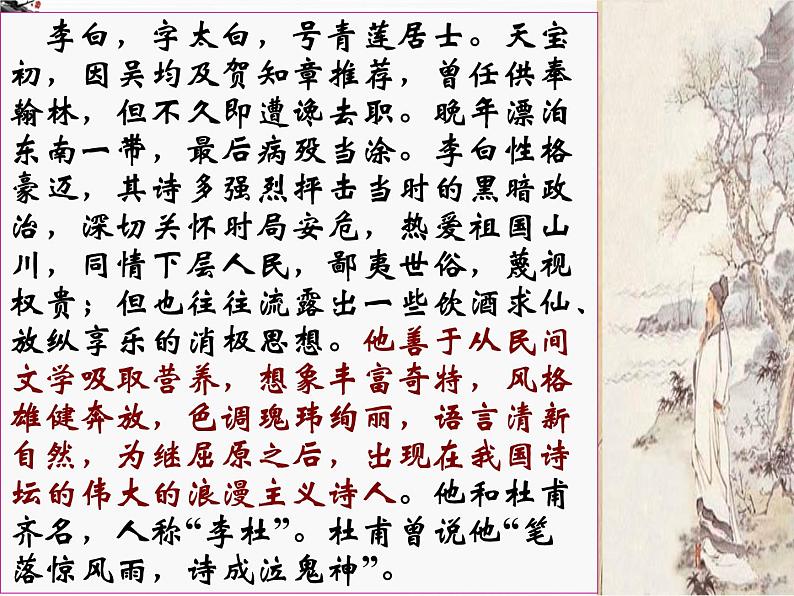 李白，字太白，号青莲居士。天宝
初，因吴均及贺知章推荐，曾任供奉
翰林，但不久即遭谗去职。晚年漂泊
东南一带，最后病殁当涂。李白性格
豪迈，其诗多强烈抨击当时的黑暗政
治，深切关怀时局安危，热爱祖国山
川，同情下层人民，鄙夷世俗，蔑视
权贵；但也往往流露出一些饮酒求仙、
放纵享乐的消极思想。他善于从民间
文学吸取营养，想象丰富奇特，风格
雄健奔放，色调瑰玮绚丽，语言清新
自然，为继屈原之后，出现在我国诗
坛的伟大的浪漫主义诗人。他和杜甫
齐名，人称“李杜”。杜甫曾说他“笔
落惊风雨，诗成泣鬼神”。